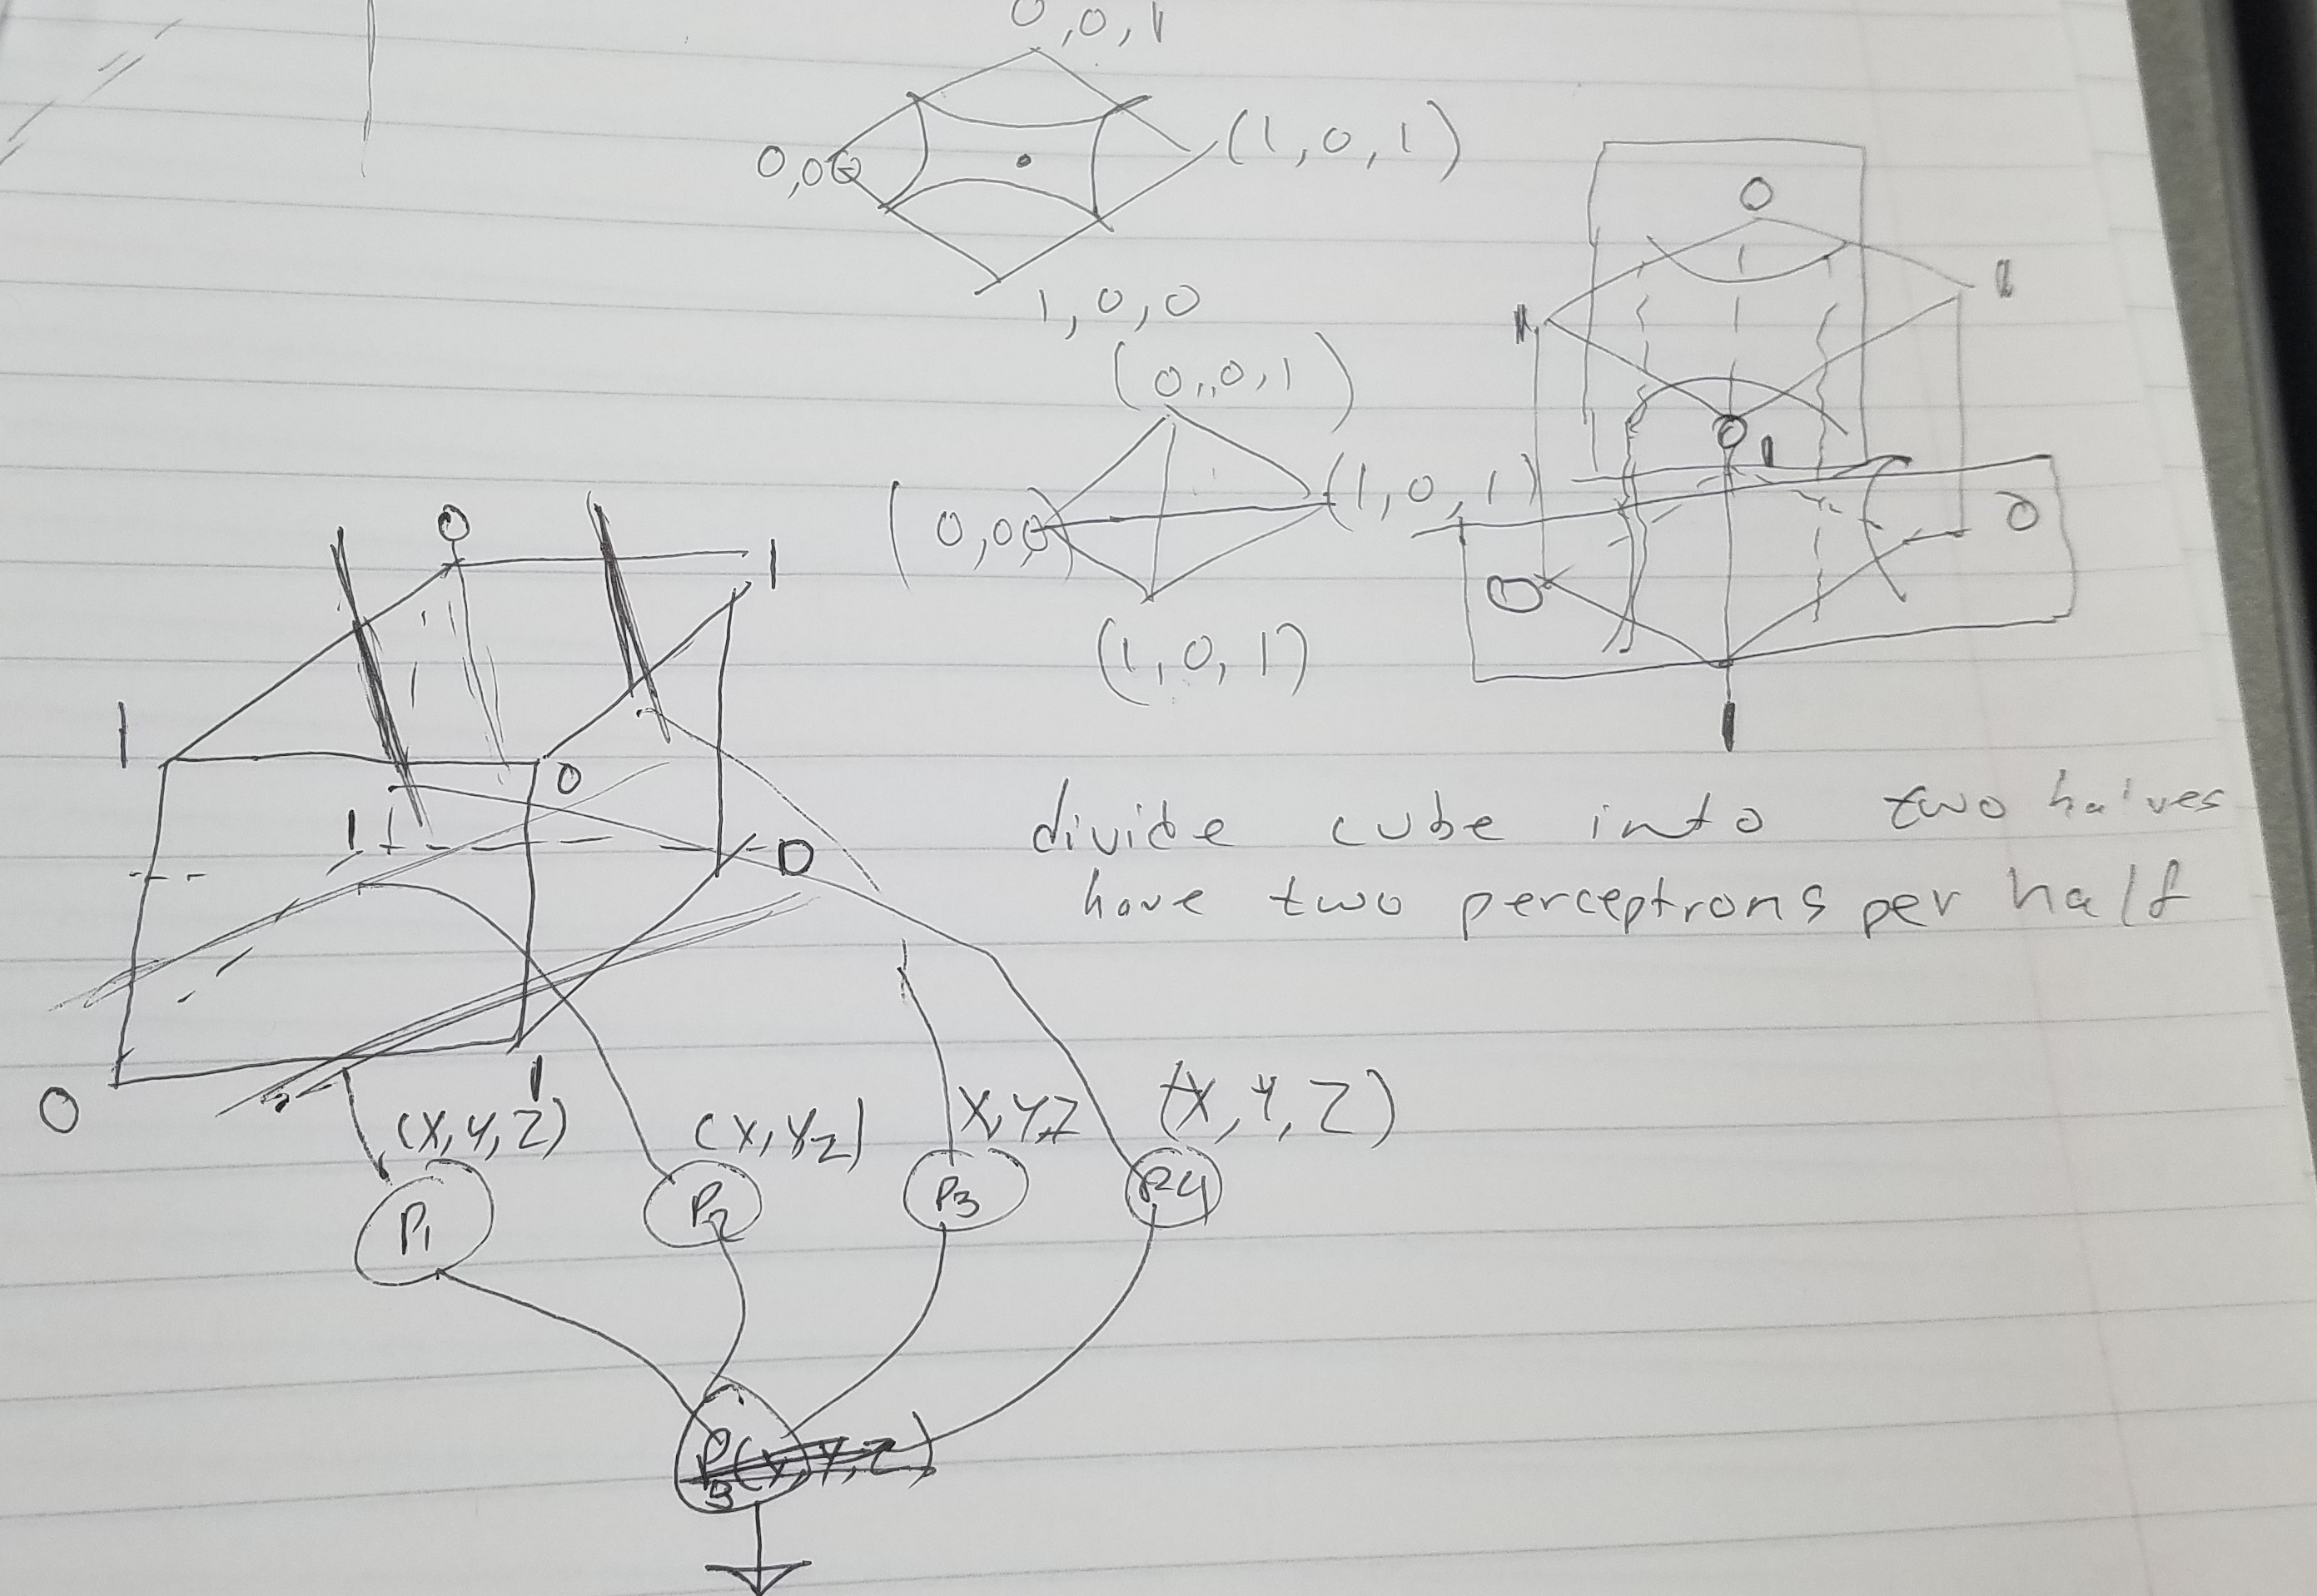 0,0,1
0,0 0
(1,0,1)
1,0,0
0
1
1
(0,,0,1)
(0,0,0)
(1,0,1)
(1,0,1)
0
1
0
0
1
0
1
1
0
1
0
divide cube into two halves
have two perceptrons per half
0
1
(X,Y,Z)
(X,Y,Z)
X,Y,Z
(X,Y,Z)
P1
P2
P3
P4